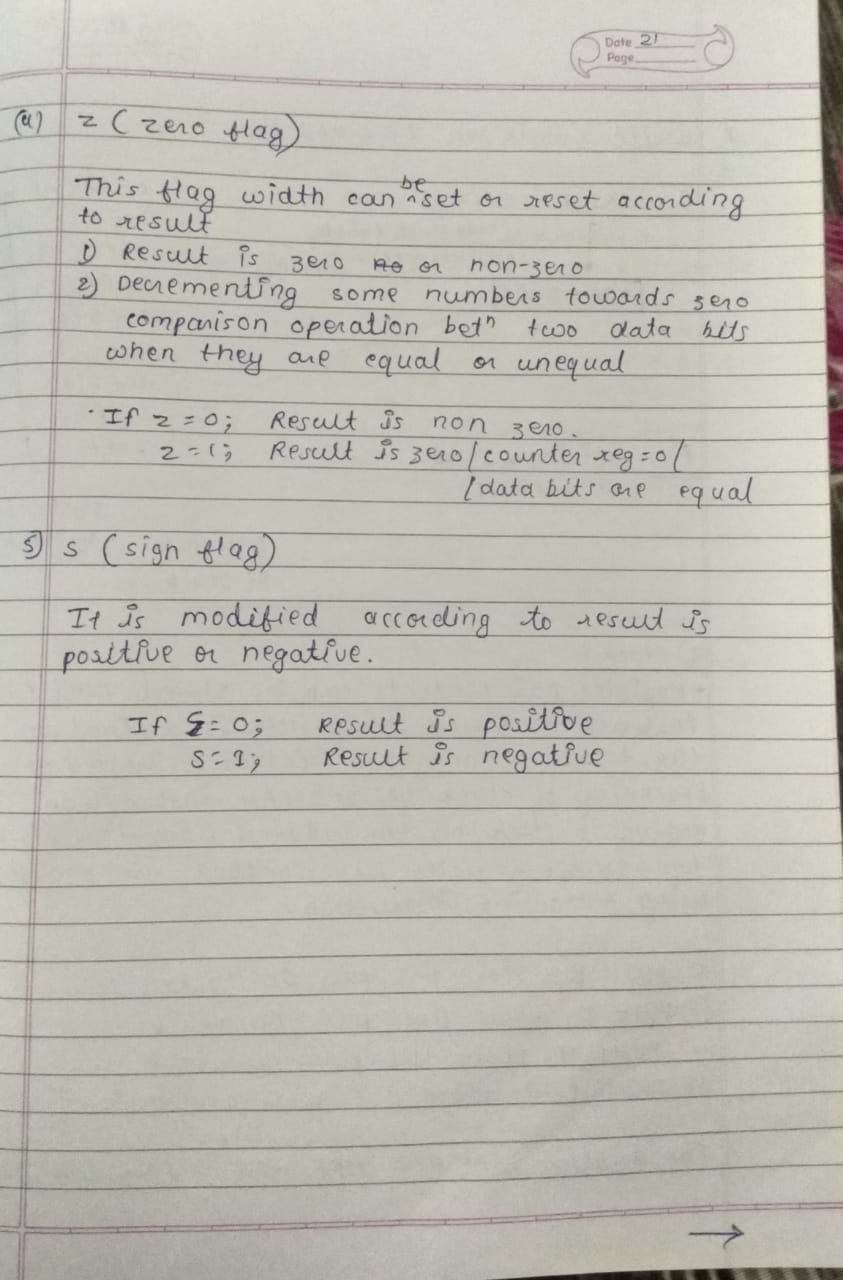 Date 21
Page
(4) Z ( zero flag)
This flag width can be set or reset according
to result
1) Result is zero or non-zero
2) Decrementing some numbers towards zero
comparison operation betn two data bits
when they are equal or unequal
If z = 0; Result is non zero.
z = 1; Result is zero/counter reg = 0/
/data bits are equal
5) S (sign flag)
It is modified according to result is
positive or negative.
If S = 0; Result is positive
S = 1; Result is negative
→